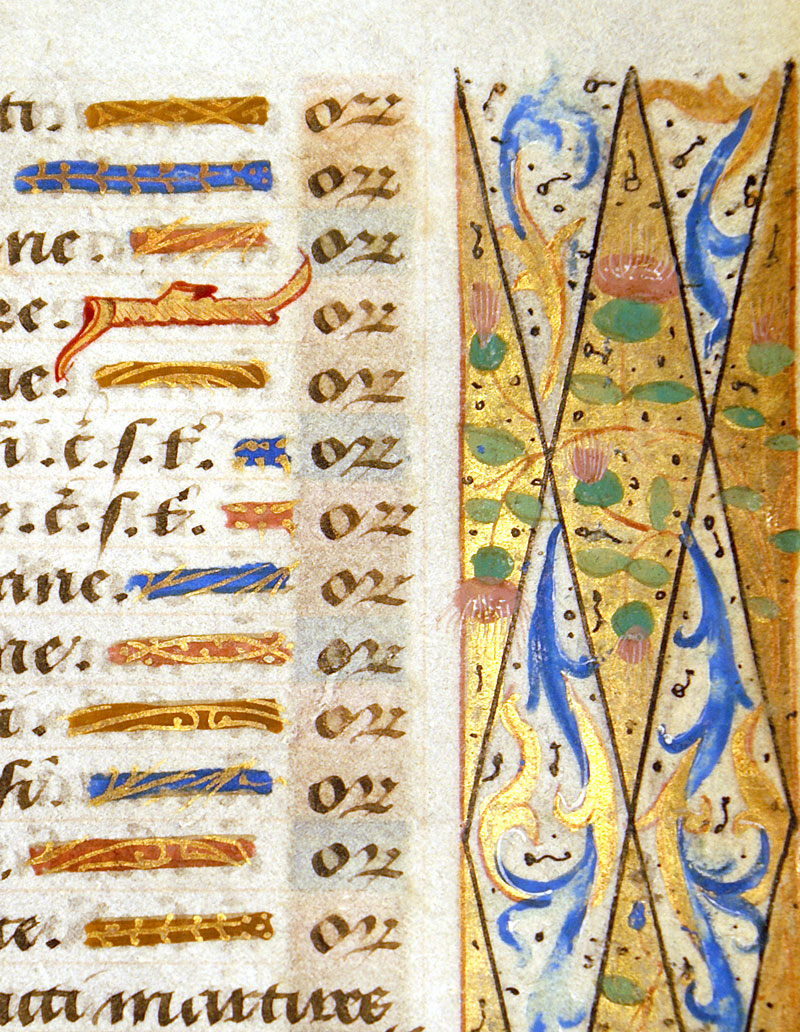 ti. or
or
ne. or
re. or
ne. or
i.c̄.s.t̄. or
e.c̄.s.t̄. or
ane. or
ne. or
i. or
si. or
. or
te. or
ncti martires